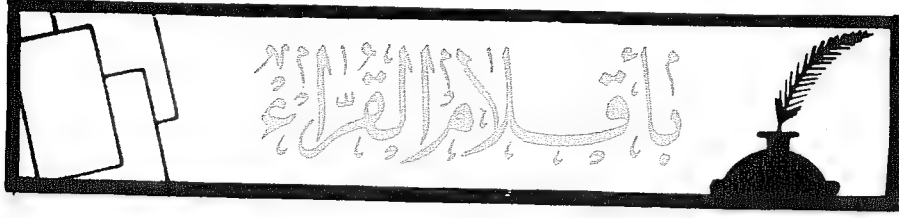 بأقلام القراء